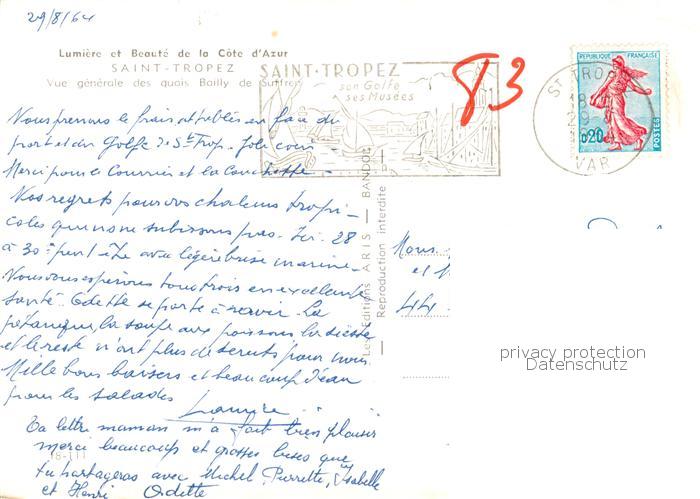 29/8/64
Lumière et Beauté de la Côte d'Azur
SAINT-TROPEZ
Vue générale des quais Bailly de Suffren
SAINT-TROPEZ
son Golfe
ses Musées
83
RÉPUBLIQUE FRANÇAISE
0,20
POSTES
ST TROPEZ
VAR
Nous prenons le frais attablés en face du
port et du Golfe de St Trop. Joli coin
Merci pour le Courrier et la couchette
Nos regrets pour vos chaleurs tropi-
cales que nous ne subissons pas. Ici 28
à 30° peut être avec légère brise marine
Nous vous espérons tous trois en excellente
santé. Odette se porte à ravir. La
pétanque, la soupe aux poissons, la sieste
et le reste n'ont plus de secrets pour nous
Mille bons baisers et beaucoup d'eau
pour les salades
Ta lettre maman m'a fait bien plaisir
merci beaucoup et grosses bises que
tu partageras avec Michel, Pierrette, Isabelle
et Henri Odette
Les Éditions ARIS — BANDOL
Reproduction interdite
Mons.
et M
44
18-111
privacy protection
Datenschutz